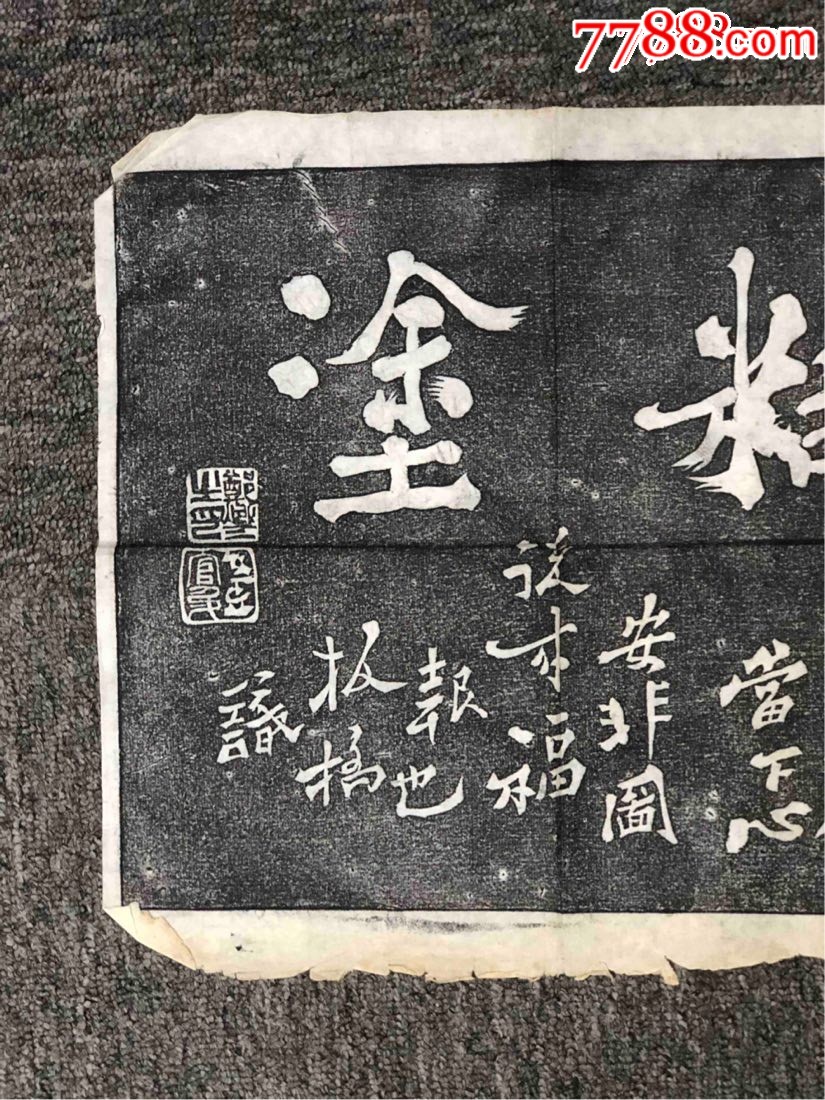 7788.com
塗
當下心
安非圖
後来福
報也
板橋
識
鄭燮之印